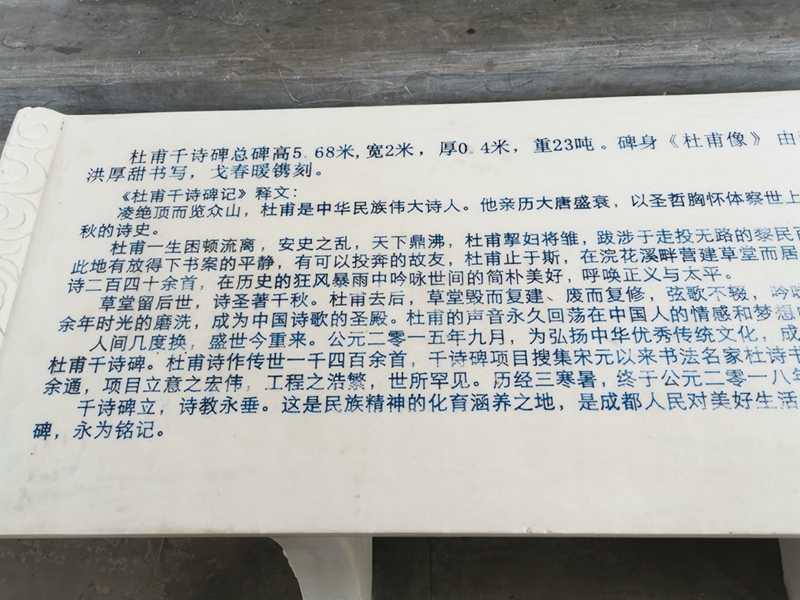 杜甫千诗碑总碑高5.68米,宽2米，厚0.4米，重23吨。碑身《杜甫像》 由
洪厚甜书写，戈春暖镌刻。
《杜甫千诗碑记》释文：
凌绝顶而览众山，杜甫是中华民族伟大诗人。他亲历大唐盛衰，以圣哲胸怀体察世上
秋的诗史。
杜甫一生困顿流离，安史之乱，天下鼎沸，杜甫挈妇将雏，跋涉于走投无路的黎民
此地有放得下书案的平静，有可以投奔的故友，杜甫止于斯，在浣花溪畔营建草堂而居
诗二百四十余首，在历史的狂风暴雨中吟咏世间的简朴美好，呼唤正义与太平。
草堂留后世，诗圣著千秋。杜甫去后，草堂毁而复建、废而复修，弦歌不辍，吟
余年时光的磨洗，成为中国诗歌的圣殿。杜甫的声音永久回荡在中国人的情感和梦想
人间几度换，盛世今重来。公元二零一五年九月，为弘扬中华优秀传统文化，成
杜甫千诗碑。杜甫诗作传世一千四百余首，千诗碑项目搜集宋元以来书法名家杜诗书
余通，项目立意之宏伟，工程之浩繁，世所罕见。历经三寒暑，终于公元二零一八年
千诗碑立，诗教永垂。这是民族精神的化育涵养之地，是成都人民对美好生活
碑，永为铭记。